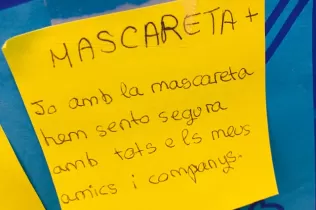 MASCARETA +
Jo amb la mascareta
hem sento segura
amb tots els meus
amics i companys.